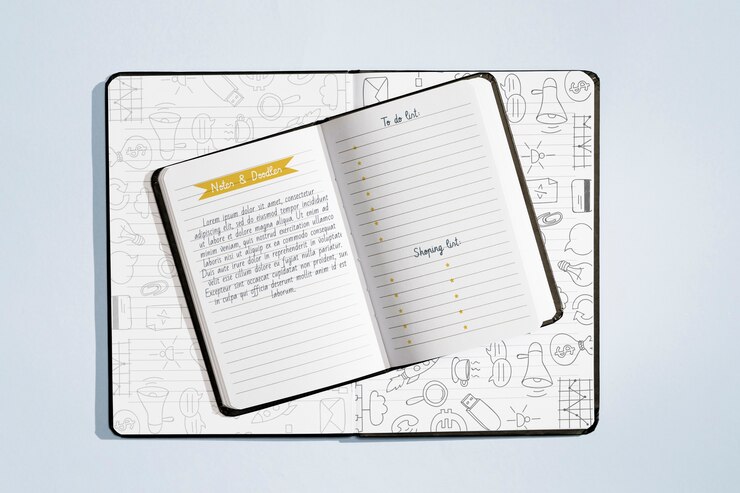 Notes & Doodles
Lorem ipsum dolor sit amet, consectetur
adipiscing elit, sed do eiusmod tempor incididunt
ut labore et dolore magna aliqua. Ut enim ad
minim veniam, quis nostrud exercitation ullamco
laboris nisi ut aliquip ex ea commodo consequat.
Duis aute irure dolor in reprehenderit in voluptate
velit esse cillum dolore eu fugiat nulla pariatur.
Excepteur sint occaecat cupidatat non proident, sun
in culpa qui officia deserunt mollit anim id est
laborum.
To do list:
Shoping list: